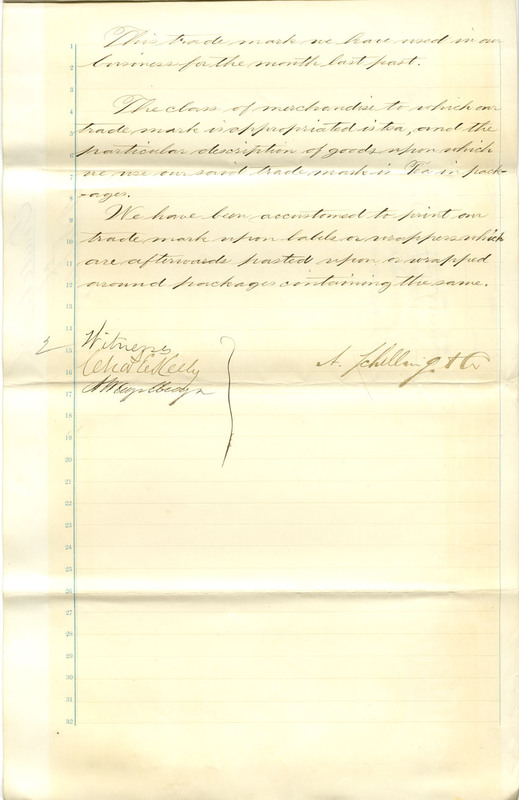 This trade mark we have used in our
business for the month last past.
The class of merchandise to which our
trade mark is appropriated is tea, and the
particular description of goods upon which
we use our said trade mark is Tea in pack-
-ages.
We have been accustomed to print our
trade mark upon labels or wrappers which
are afterwards pasted upon or wrapped
around packages containing the same.
Witness
Chas E Kelly
A. Schilling & Co
1
2
3
4
5
6
7
8
9
10
11
12
13
14
15
16
17
18
19
20
21
22
23
24
25
26
27
28
29
30
31
32